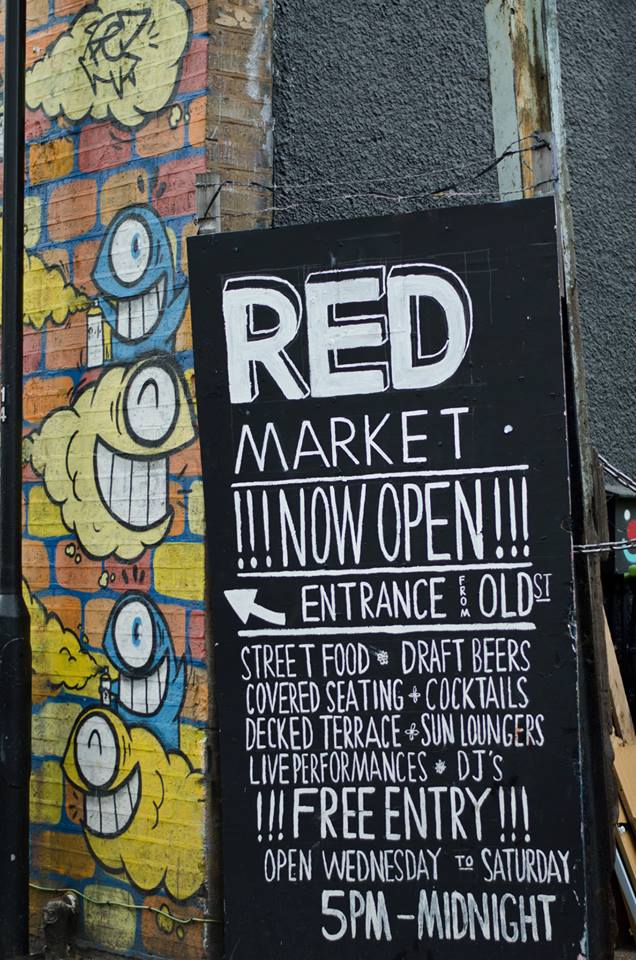 RED
MARKET
!!!NOW OPEN!!!
ENTRANCE FROM OLD ST
STREET FOOD DRAFT BEERS
COVERED SEATING + COCKTAILS
DECKED TERRACE + SUN LOUNGERS
LIVE PERFORMANCES * DJ'S
!!!FREE ENTRY!!!
OPEN WEDNESDAY TO SATURDAY
5PM - MIDNIGHT